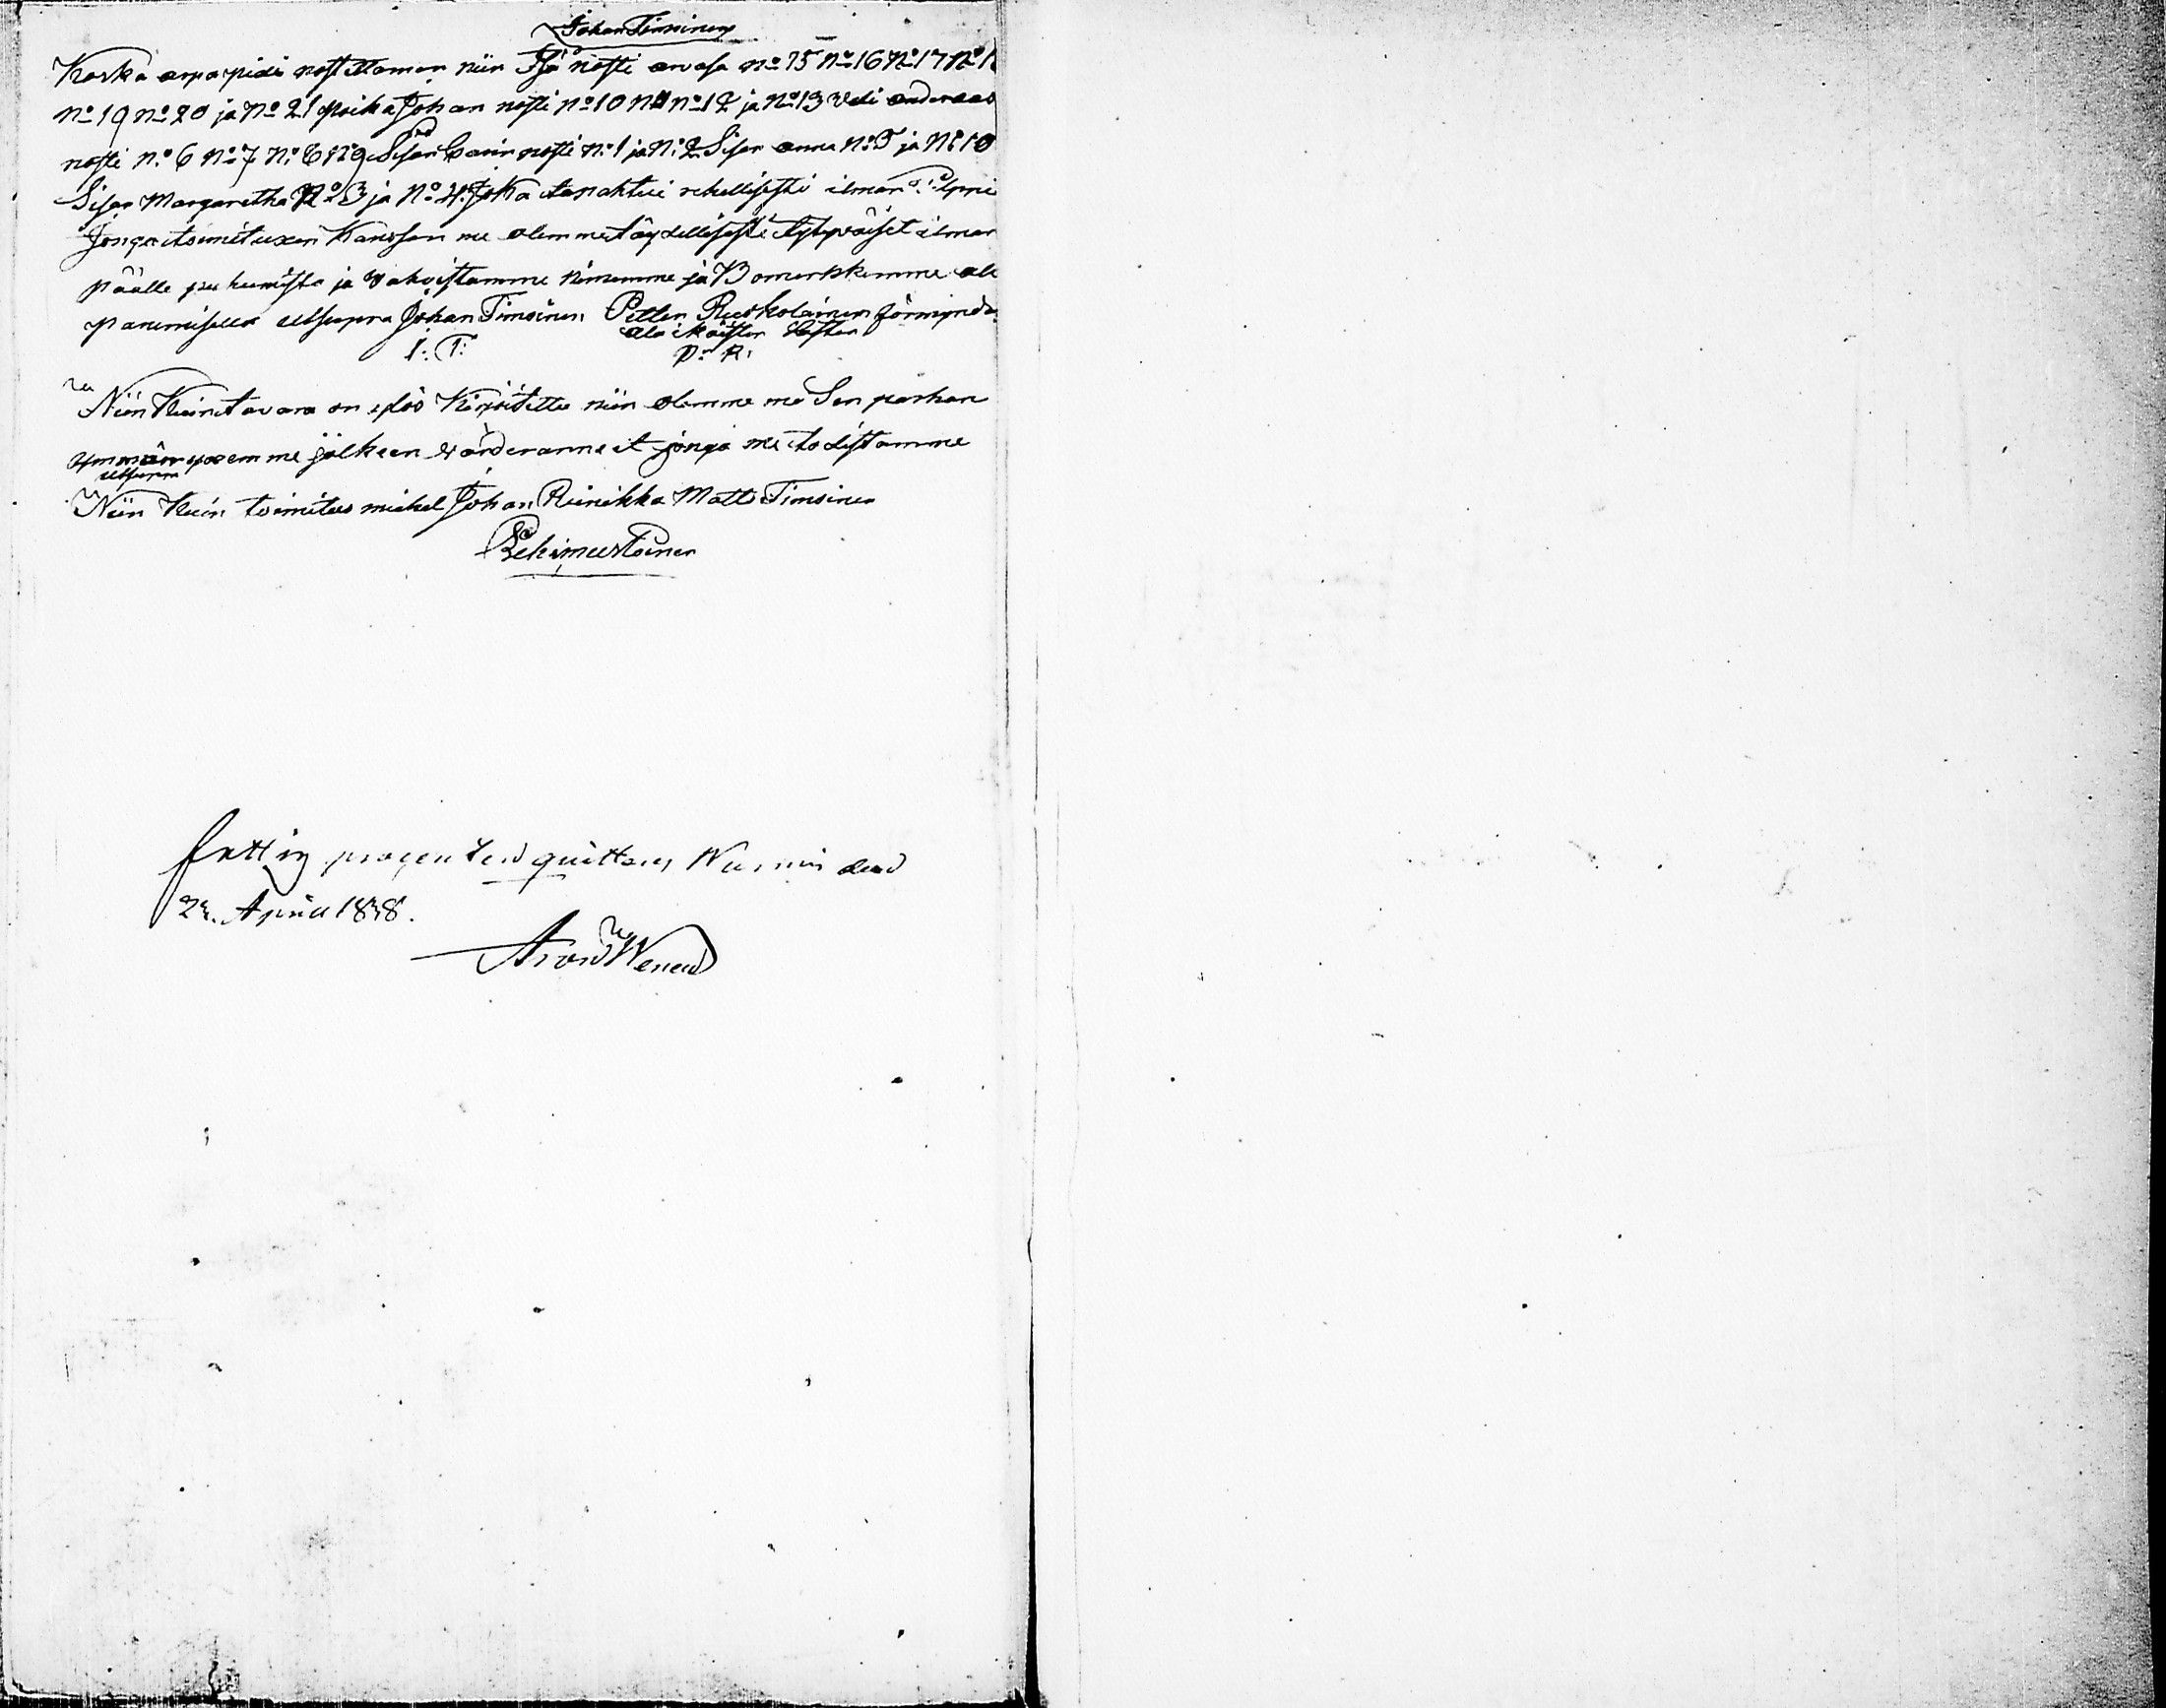 Johan Timoinen
Koska arpa pidi nostettaman niin Isä nosti arvasa No 15 No 16 No 17 No 1
No 19 No 20 ja No 21 poika Johan nosti No 10 No 11 No 12 ja No 13 Veli anderas
nosti No 6 No 7 No 8 No 9 Sisar Carin nosti No 1 ja No 2 Sisar anna No 5 ja No 10
Sisar Margaretha No 3 ja No 4 Joka tapahtui rehellisesti ilman
Jonga toimituxen Kanssan me olemme täydellisesti tytyväiset ilman
päälle puhumista ja vahvistamme nimemme ja Bomerkkemme ala
panemisella utsupra Johan Timoinen Petter Ruoskolainen förmynda
ala ikäisten lasten
I: T: P: R:
Niin Kuin tavara on ylös Kirjoitettu niin olemme me Sen parhan
ymmärryxemme jälkeen värderannet jonga me todistamme
utsupra
Niin Kuin toimitus miehet Johan Reinikka Matts Timoinen
Pehr
fattig procenten quitteras Nurmis den
23. April 1838.
Aron Wenell